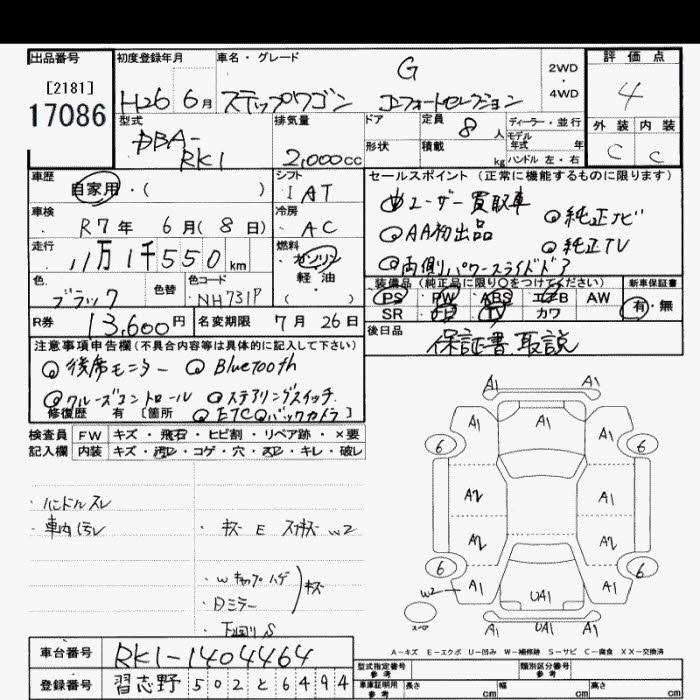 出品番号 初度登録年月 車名・グレード 評価点
[2181] G 2WD・4WD 4
17086 H26 6月 ステップワゴン コンフォートセレクション
型式 排気量 ドア 定員 8人 ディーラー・並行 外装 内装
DBA-RK1 2,000cc 形状 積載 kg モデル年式 年 C C
ハンドル 左・右
車歴 自家用・( ) シフト IAT セールスポイント(正常に機能するものに限ります)
ユーザー買取車 純正ナビ
車検 R7年 6月(8日) 冷房 AC
AA初出品 純正TV
走行 11万1千550km 燃料 ガソリン 軽油 ( ・ )
両側パワースライドドア
色 ブラック 色替 色コード NH731P
装備品(純正品に限り○をつけてください) 新車保証書
PS・PW・ABS・エアB AW 有・無
SR カワ
R券 13,600円 名変期限 7月26日
後日品 保証書、取説
注意事項申告欄(不具合内容等は具体的に記入して下さい)
後席モニター Bluetooth
クルーズコントロール ステアリングスイッチ
修復歴 有 [箇所 ETC バックカメラ ]
検査員 FW キズ・飛石・ヒビ割・リペア跡・×要
記入欄 内装 キズ・汚レ・コゲ・穴・スレ・キレ・破レ
・ハンドルスレ
・車内汚レ ・キズ E スリキズ W2
・Wキャップハゲ
・Dミラー キズ
・下回りS
A1 A1
A1 A1 A1
6 6
A2 A1
A2 A1
6 6
W2 A1 UA1 A1
スペア A1 UA1 A1
A-キズ E-エクボ U-凹み W-補修跡 S-サビ C-腐食 XX-交換済
車台番号 RK1-1404464
型式指定番号 参考 類別区分番号 参考
登録番号 習志野 502 と 6494
車庫証明用 参考 長さ cm 幅 cm 高さ cm